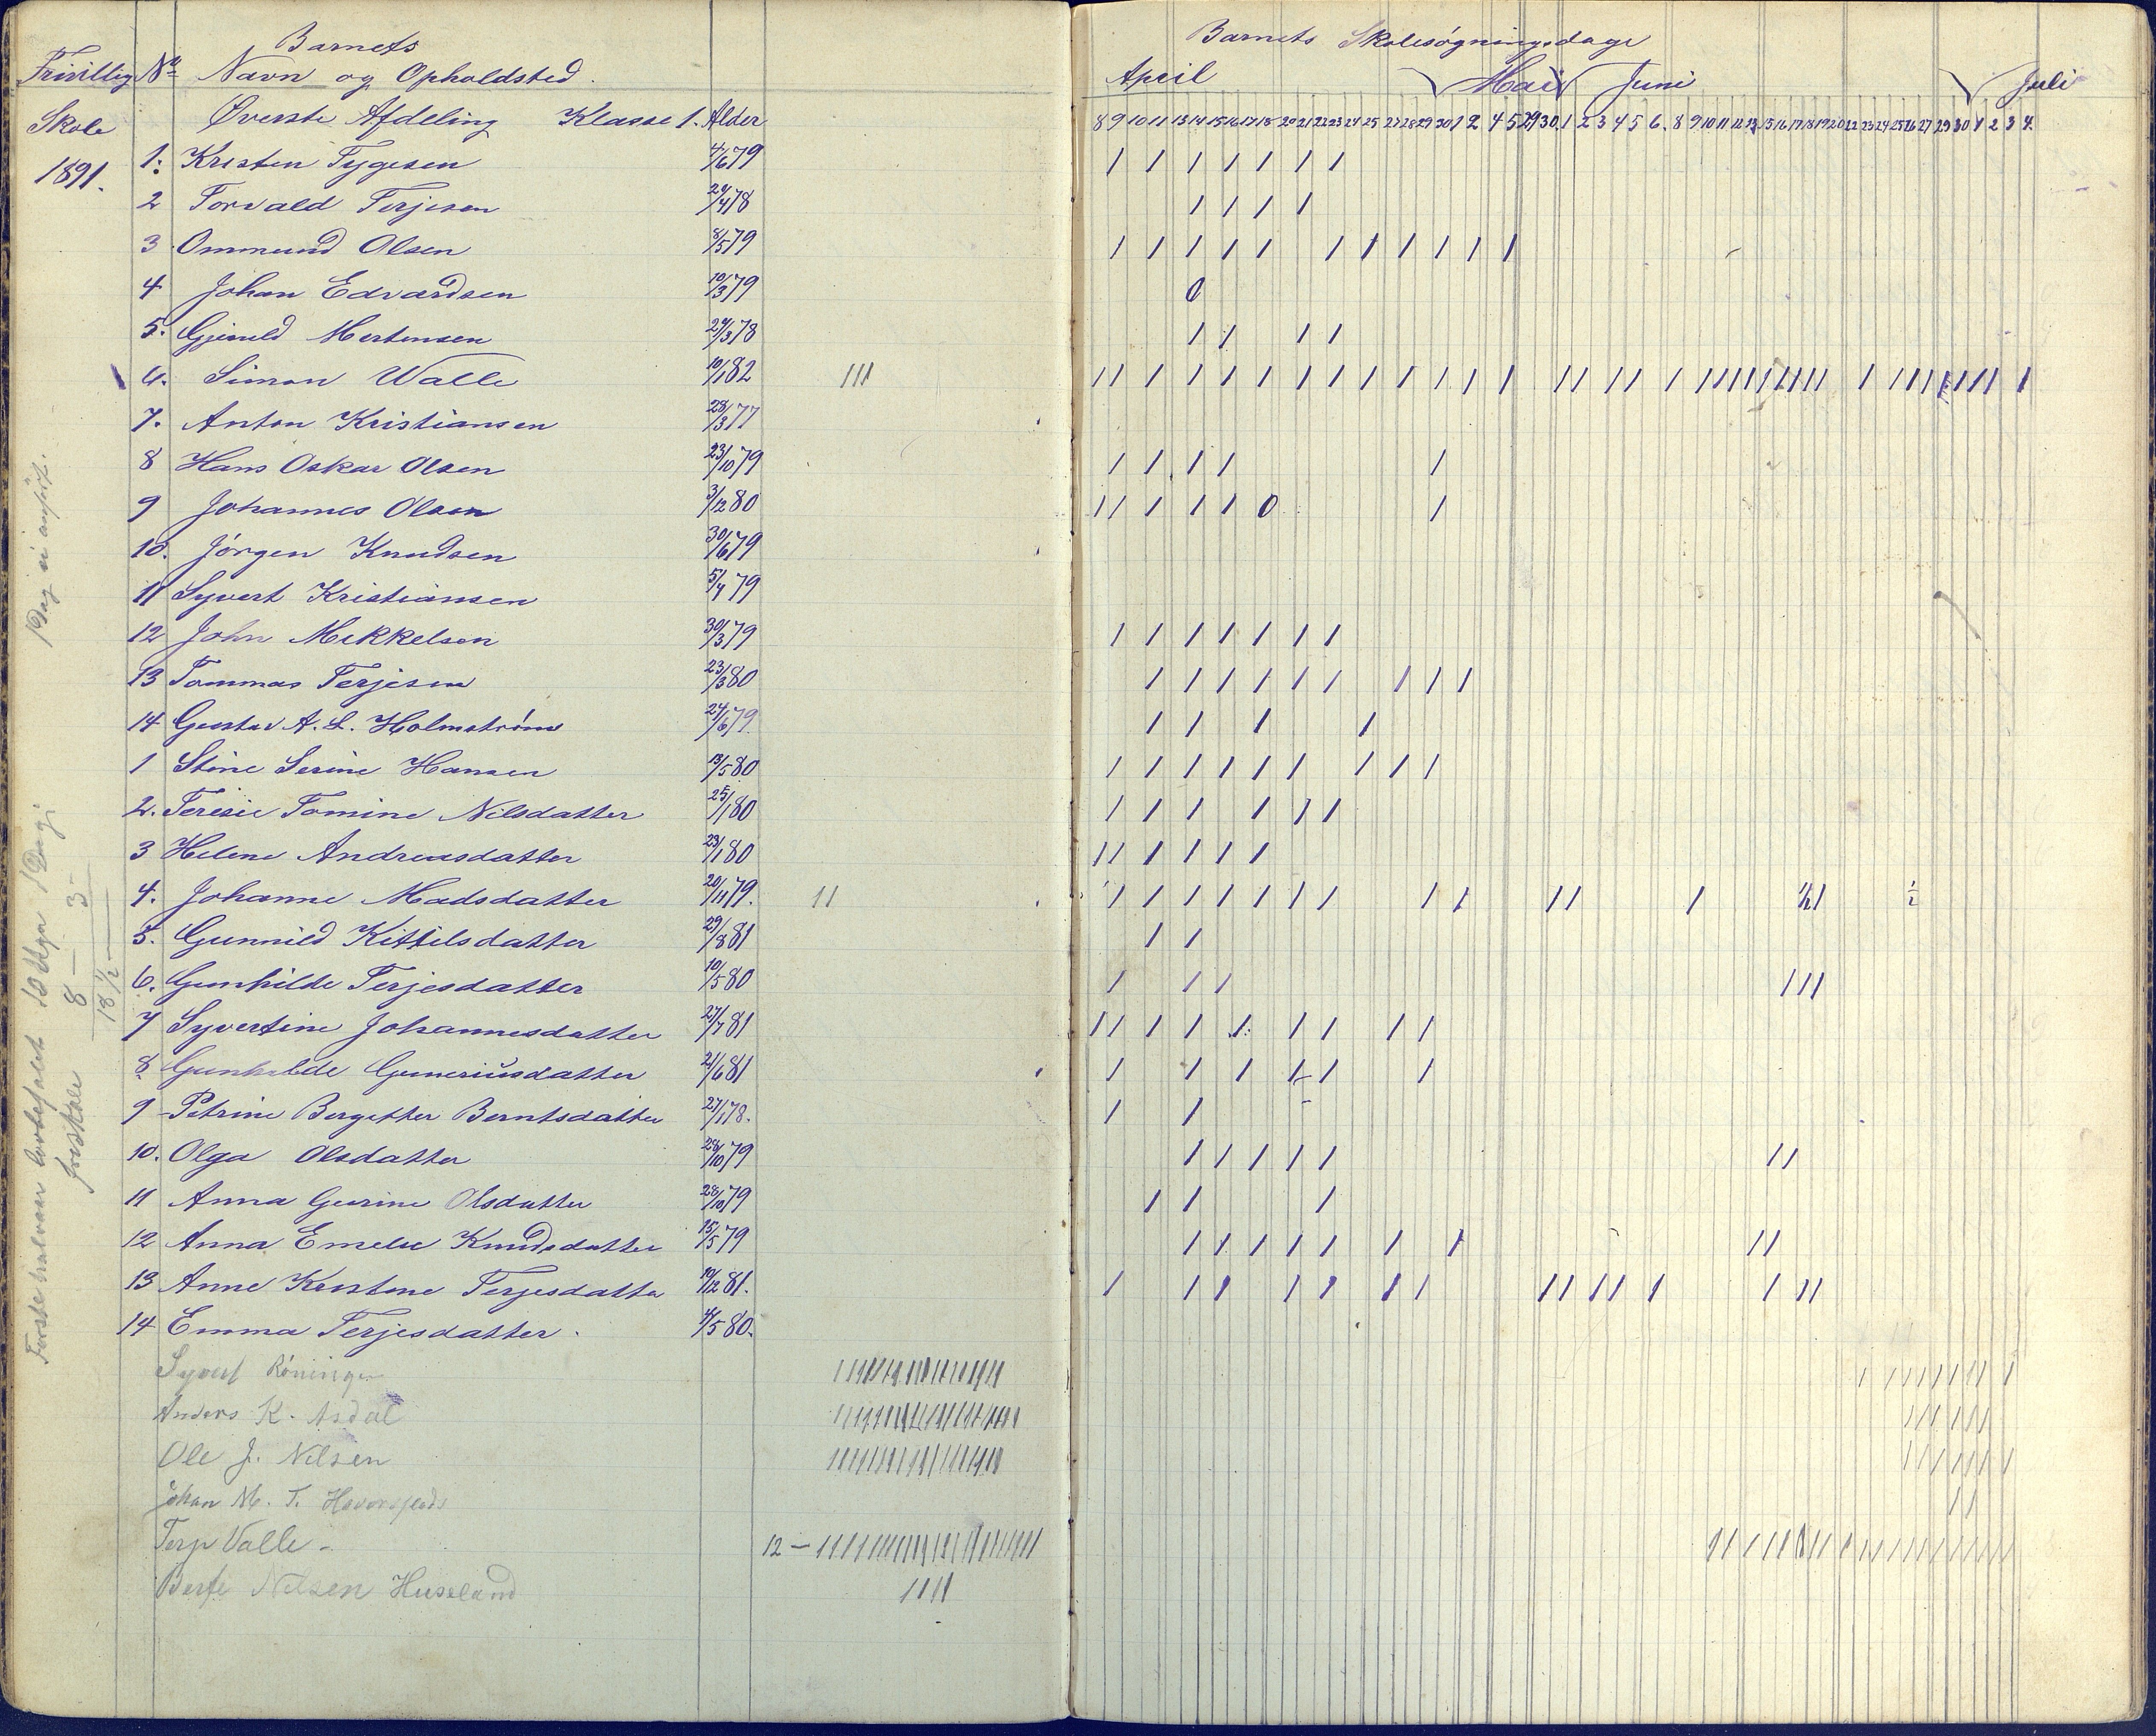 Barnets
Frivillig Nº Navn og Opholdsted.
Skole Överste Afdeling Klasse 1. Alder
1891.
1. Kristen Tygesen 4/6 79
2 Torvald Terjesen 29/4 78
3 Ommund Olsen 8/5 79
4 Johan Edvardsen 10/3 79
5. Mortensen 29/3 78
6. Simon Walle 10/1 82 III
7. Anton Kristiansen 28/3 77
8 Hans Oskar Olsen 23/10 79
9 Johannes Olsen 3/12 80
10. Jörgen Knudsen 30/6 79
11 Syvert Kristiansen 5/4 79
12 John Mikkelsen 30/3 79
13 Tommas Terjesen 23/3 80
14 Gustav A. L. Holmström 24/6 79.
1 Stine Serine Hansen 13/5 80
2. Teresie Tomine Nilsdatter 25/1 80
3 Helene Andreasdatter 23/1 80
4. Johanne Madsdatter 20/11 79. II
5. Gunnild Kittilsdatter 29/8 81
6. Gunhilde Terjesdatter 10/5 80
7 Syvertine Johannesdatter 27/7 81
8 Gunhilde Gumeriusdatter 21/6 81
9 Petrine Bergitter Berntsdatter 27/1 78.
10. Olga Olsdatter 28/10 79
11 Anna Gurine Olsdatter 28/10 79
12 Anna Emelie Knudsdatter 15/5 79
13 Anne Kristine Terjesdatter 10/12 81.
14 Emma Terjesdatter. 4/5 80.
Syvert Röningen
Anders K. Asdal
Ole J. Nilsen
Johan M. T.
Terje Valle - 12 -
Berte Nilsen Huseland
1 Dag ei anfört.
Förste halvaar 1 Dag i
3 -
8 -
18 1/2 -
friskole
Barnets Skolesögningsdage
April Mai Juni Juli
8 9 10 11 13 14 15 16 17 18 20 21 22 23 24 25 27 28 29 30 1 2 4 5 29 30 1 2 3 4 5 6. 8 9 10 11 12 13 15 16 17 18 19 20 22 23 24 25 26 27 29 30 1 2 3 4.